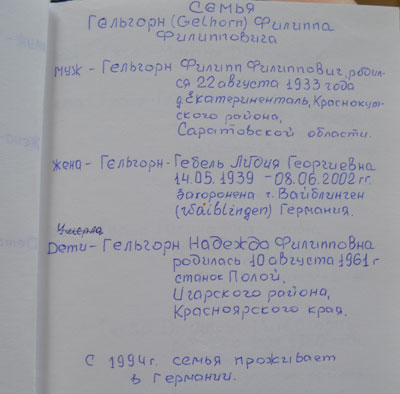 Семья
Гельгорн (Gelhorn) Филиппа
Филипповича
муж - Гельгорн Филипп Филиппович, родил-
ся 22 августа 1933 года
д. Екатериненталь, Краснокут-
ского района,
Саратовской области.
жена - Гельгорн-Гебель Лидия Георгиевна
14.05.1939 - 08.06.2002 гг.
Захоронена г. Вайблинген
(Waiblingen) Германия.
Умерла
Дети - Гельгорн Надежда Филипповна
родилась 10 августа 1961 г
станок Полой,
Игарского района,
Красноярского края.
С 1994 г. семья проживает
в Германии.